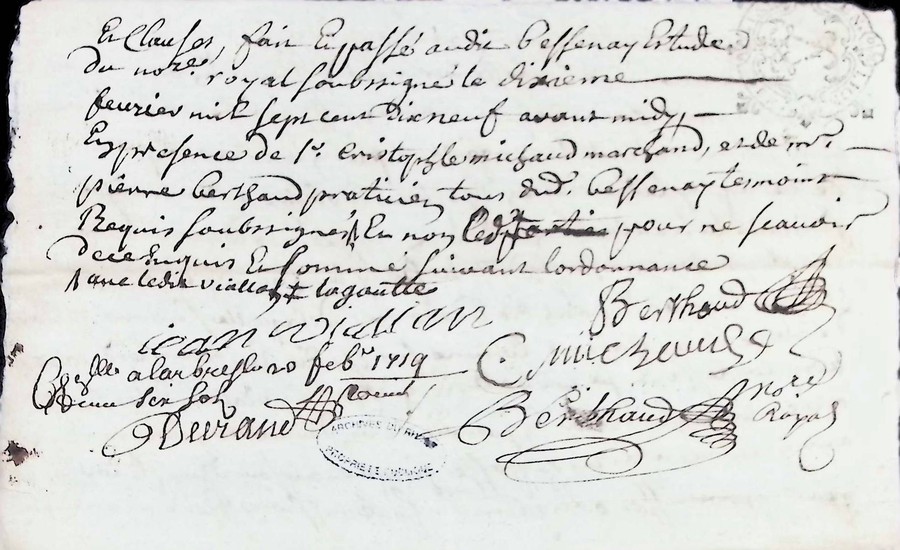 Et Clauses, fait Et passé audit bessenay Estude
du nore. royal soubsigné le dixieme
feurier mil sept cent dix neuf avant midy,
En presence de sr. Cristophle michaud marchand, et de mr.
pierre berthaud praticien tous dud. bessenay tesmoins
Requis soubsignés Et non led. partie pour ne scavoir
de ce Enquis Et sommé suivant l'ordonnance
avec ledit viallan + lagoutte
jean viallan
Berthaud
C michaud
a larbresle 20 febr. 1719
Receu
six sols
Durand
Berthaud nore
Royal
ARCHIVES DU RHÔNE
PROPRIÉTÉ PUBLIQUE